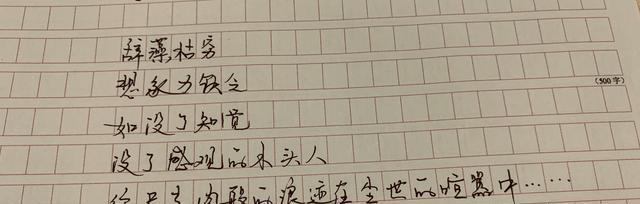 辞藻枯穷
想象力缺乏
如没了知觉
没了感观的木头人
肉般的浪迹在尘世的喧嚣中……
(500字)